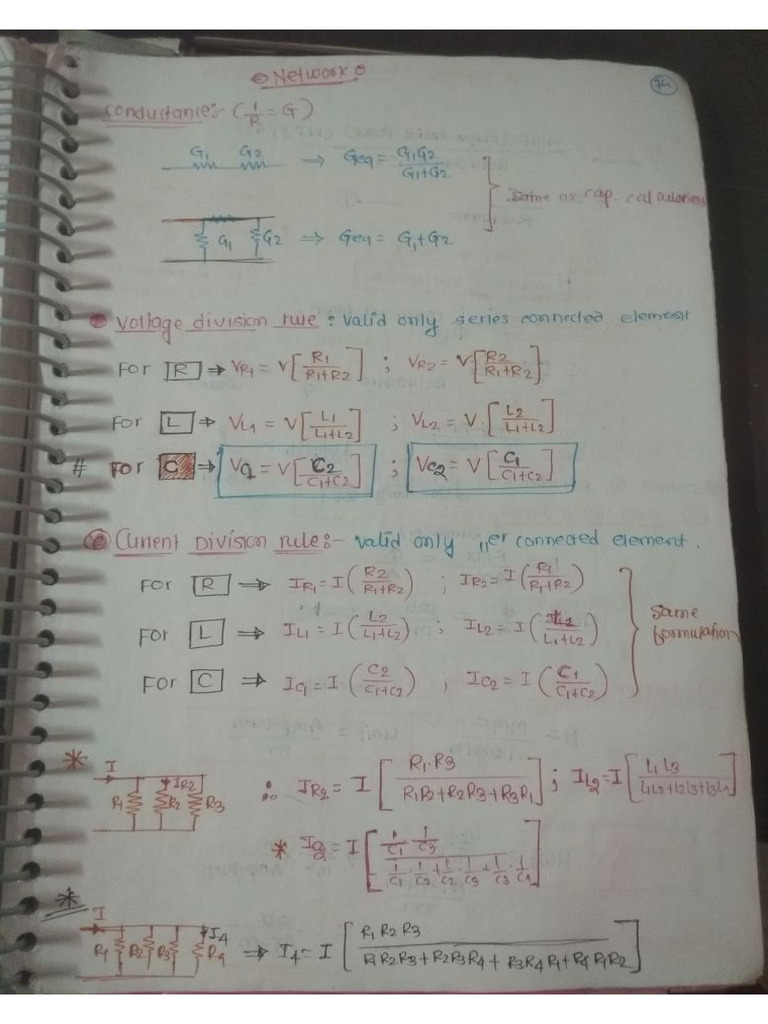 Network
74
conductance:- (1/R = G)
G1 G2 → Geq = G1G2/G1+G2
Same as cap. calculations
G1 G2 ⇒ Geq = G1+G2
Voltage division rule : valid only series connected element
For [R] → VR1 = V[R1/R1+R2] ; VR2 = V[R2/R1+R2]
For [L] ⇒ VL1 = V[L1/L1+L2] ; VL2 = V[L2/L1+L2]
# For [C] ⇒ VC1 = V[C2/C1+C2] ; VC2 = V[C1/C1+C2]
Current Division rule:- valid only ||er connected element.
For [R] ⇒ IR1 = I(R2/R1+R2) ; IR2 = I(R1/R1+R2)
For [L] ⇒ IL1 = I(L2/L1+L2) ; IL2 = I(L1/L1+L2)
same formulation
For [C] ⇒ IC1 = I(C2/C1+C2) , IC2 = I(C1/C1+C2)
* I IR2 R1 R2 R3 ∴ IR2 = I[R1·R3/R1R2+R2R3+R3R1] ; IL2 = I[L1L3/L1L2+L2L3+L3L1]
* IC2 = I[1/C1 1/C3 / 1/C1·1/C2+1/C2·1/C3+1/C3·1/C1]
* I I4 R1 R2 R3 R4 ⇒ I4 = I[R1R2R3/R1R2R3+R2R3R4+R3R4R1+R4R1R2]